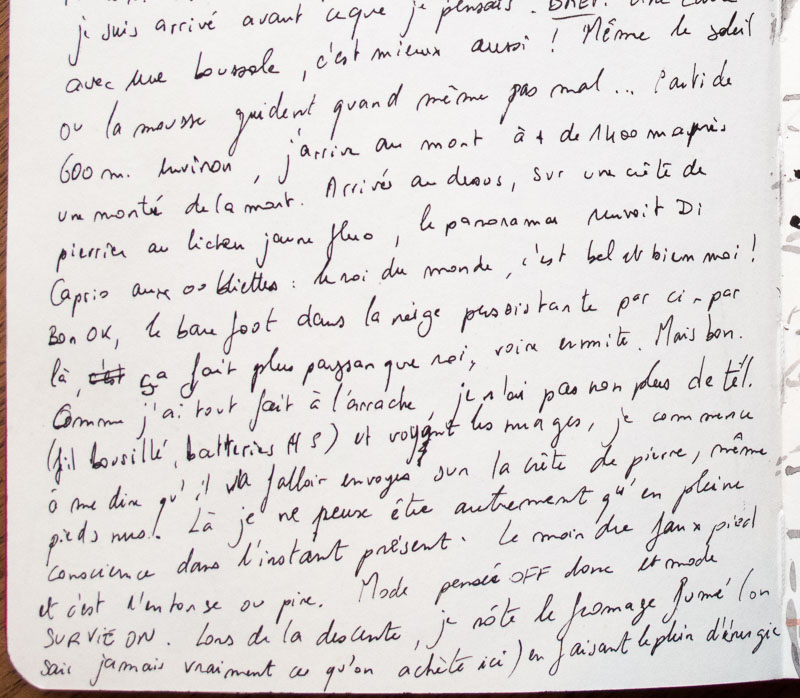 je suis arrivé avant ceque je pensais. BREF.
avec une boussole, c'est mieux aussi ! Même le soleil
ou la mousse guident quand même pas mal... Parti de
600 m. environ, j'arrive au mont à + de 1400 m après
une monté de la mort. Arrivés au dessus, sur une crête de
pierrier au lichen jaune fluo, le panorama renvoit Di
Caprio aux oubliettes : le roi du monde, c'est bel et bien moi !
Bon OK, le bare foot dans la neige persistante par ci-par
là, ça fait plus paysan que roi, voire ermite. Mais bon.
Comme j'ai tout fait à l'arrache, je n'ai pas non plus de tél.
(fil bousillé, batteries HS) et voyant les nuages, je commence
à me dire qu'il va falloir envoyer sur la crête de pierre, même
pieds nus ! Là je ne peux être autrement qu'en pleine
conscience dans l'instant présent. Le moindre faux pied
et c'est l'entorse ou pire. Mode pensée OFF donc et mode
SURVIE ON. Lors de la descente, je rôte le fromage fumé (on
sais jamais vraiment ce qu'on achète ici) en faisant le plein d'énergie